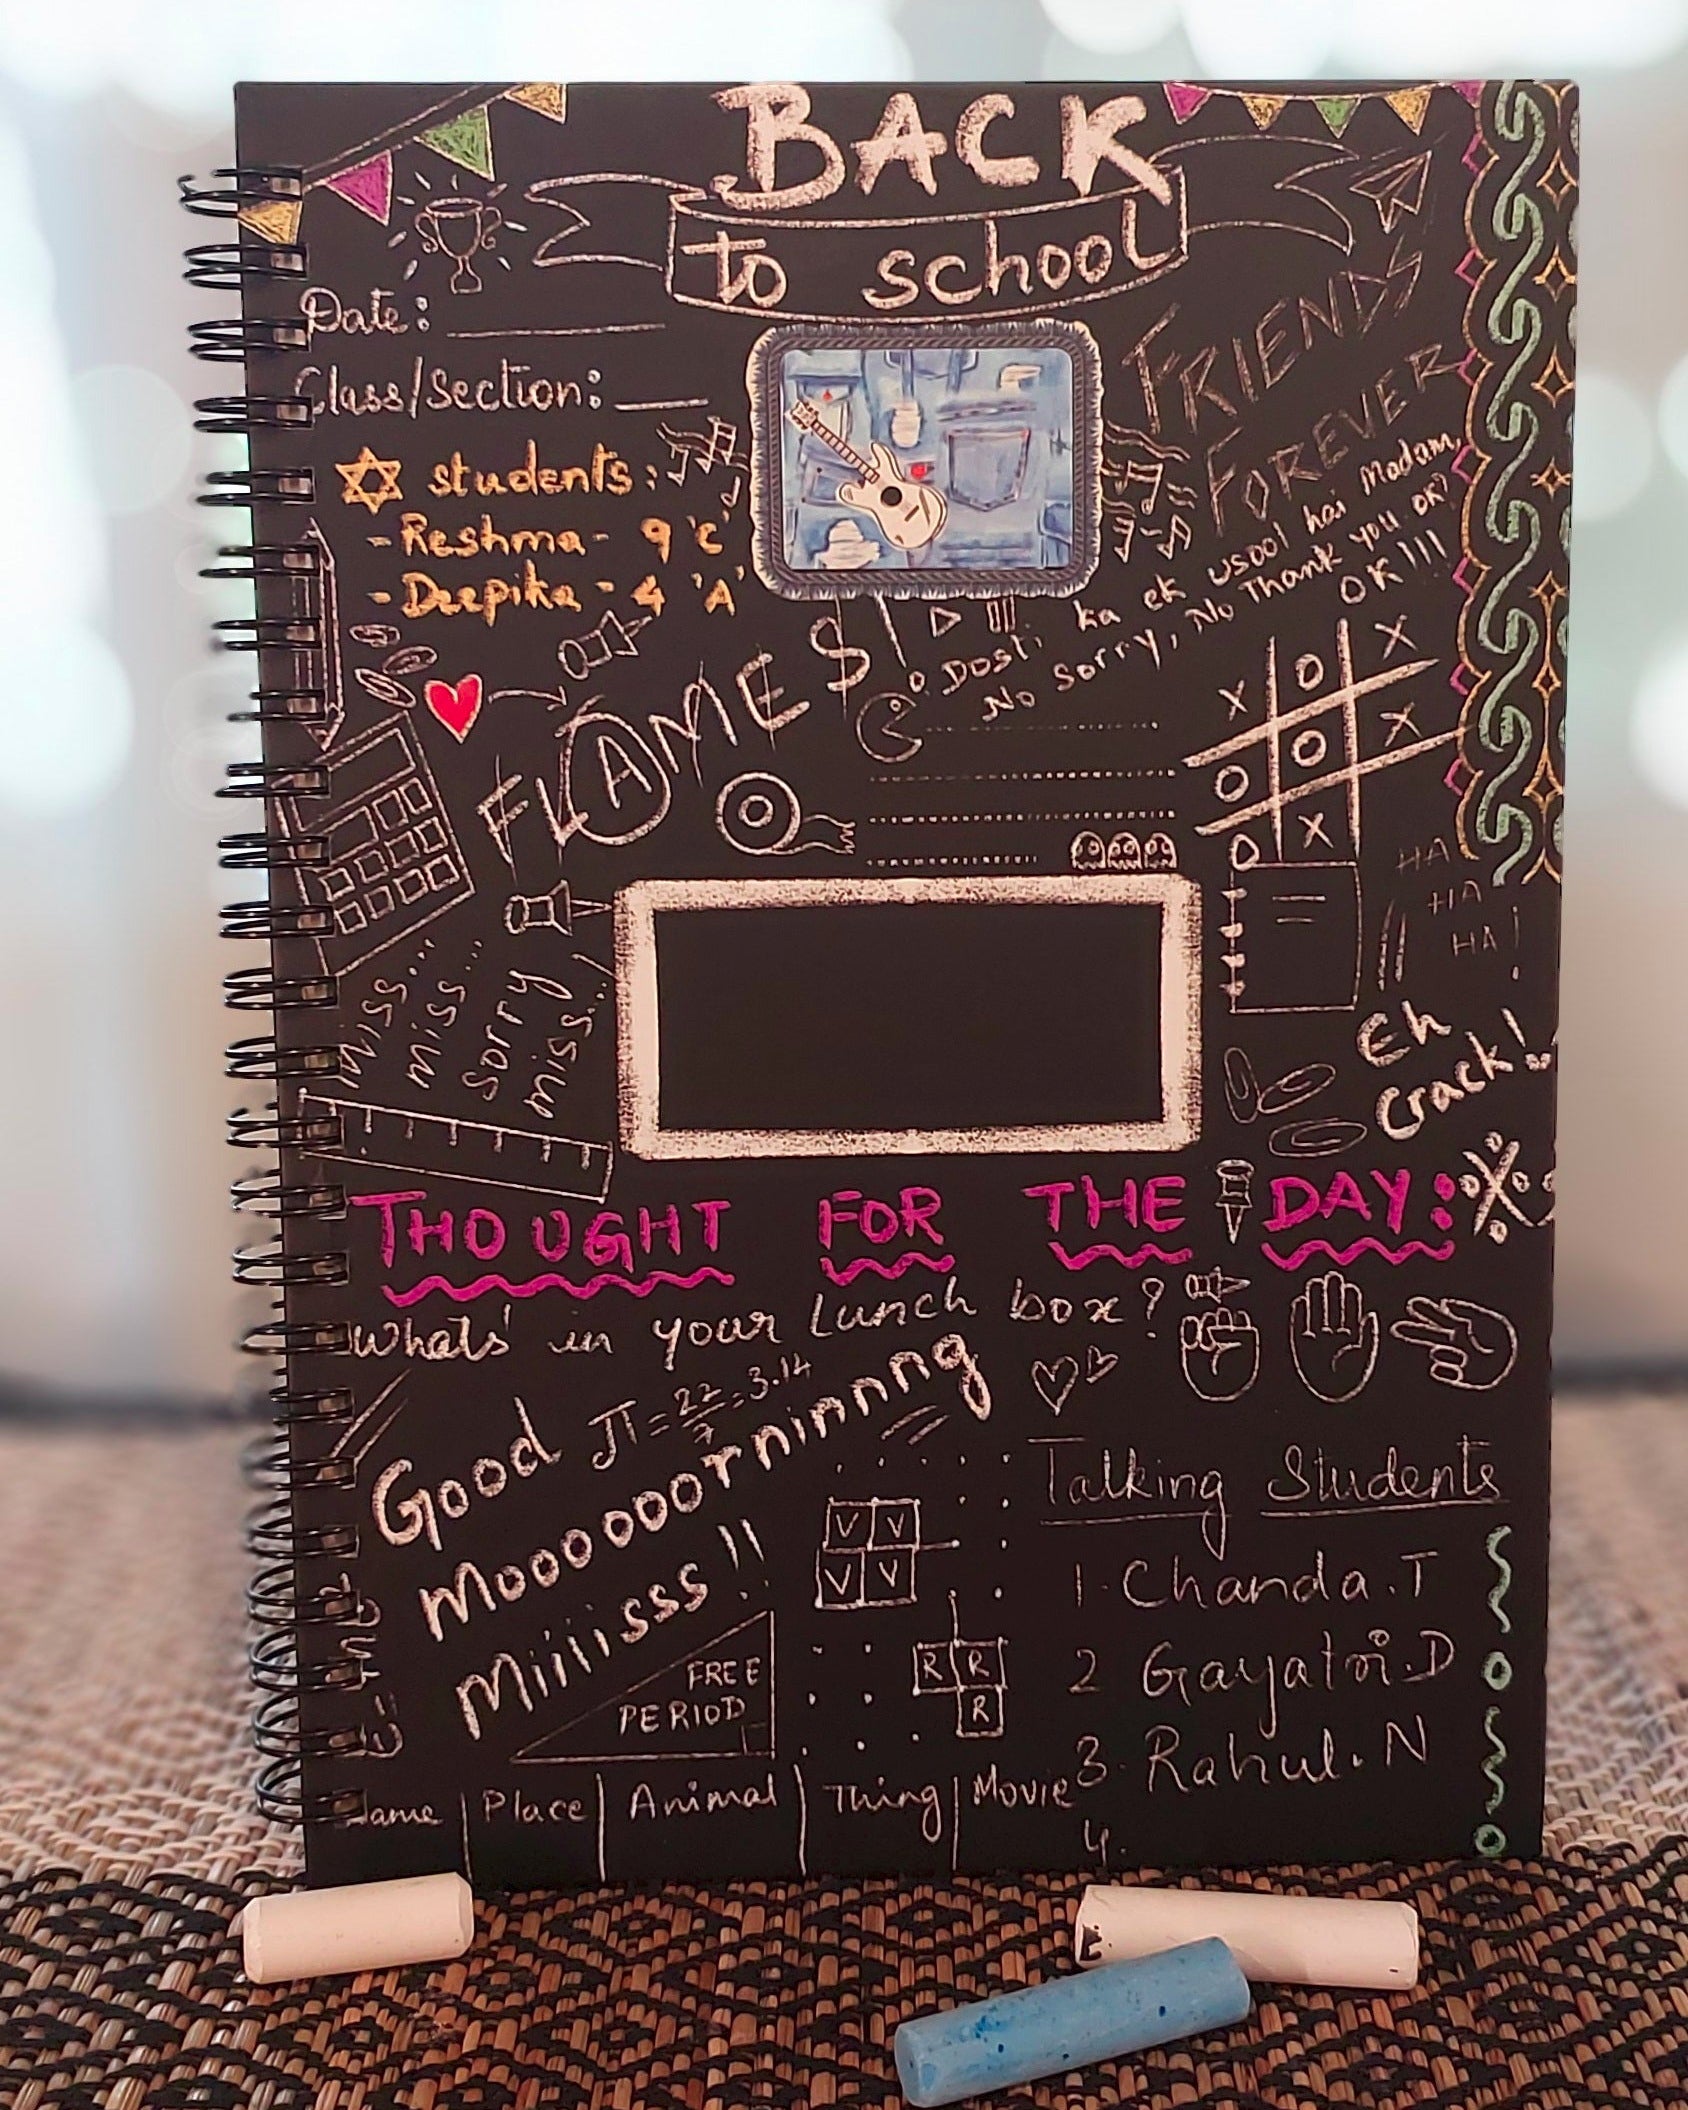 BACK
to school
Date:
Class/Section:
students:
-Reshma- 9 'C'
-Deepika - 4 'A'
FRIENDS
FOREVER
Dosti ka ek usool hai Madam,
No Sorry, No Thank you OK?
OK!!!
FLAMES
X O X
O O X
O X
HA
HA
HA!
miss...
miss...
sorry
miss...!
Eh
Crack!
THOUGHT FOR THE DAY:
What's' in your Lunch box?
π = 22/7 = 3.14
Good
Mooooooorninnnng
Miiiiisss!!
V V
V V
R R
R
FREE
PERIOD
Talking Students
1. Chanda.T
2 Gayatri.D
3. Rahul.N
4.
Name | Place | Animal | Thing | Movie